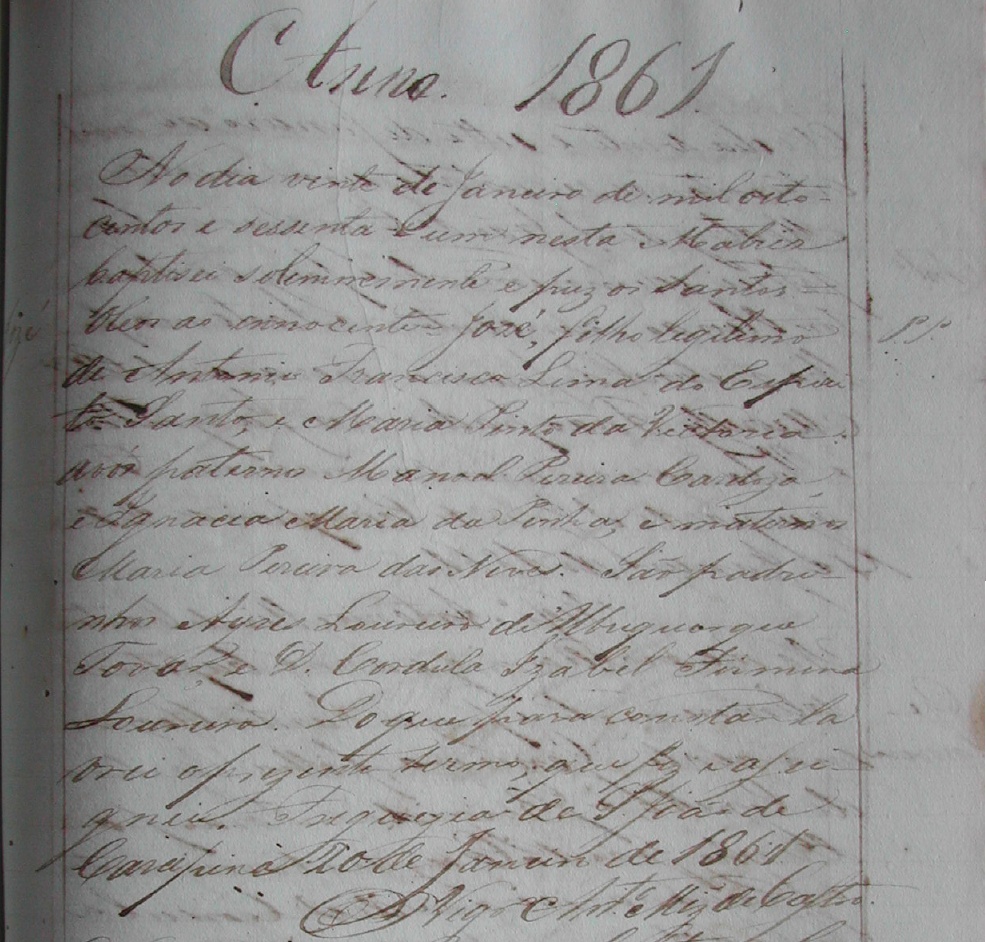 Anno. 1861.
No dia vinte de Janeiro de mil oito=
centos e sessenta e um nesta Matriz
baptisei solemnemente e puz os Santos=
Oleos ao innocente José, filho legitimo
José
P.P.
de Antonio Francisco Lima do Espiri
to Santo, e Maria Pinto da Victoria.
avós paternos Manoel Pereira Cardozo
e Ignacia Maria da Penha, e maternos
Maria Pereira das Neves. São padri-
nhos Ayres Loureiro de Albuquerque
Tovar e D. Cordula Izabel Firmina
Loureiro. Do que para constar la
vrei o prezente termo, que fiz e assi-
gnei. Freguezia de S. João de
Carapina 20 de Janeiro de 1861
O Vigro. Anto. de Castro.